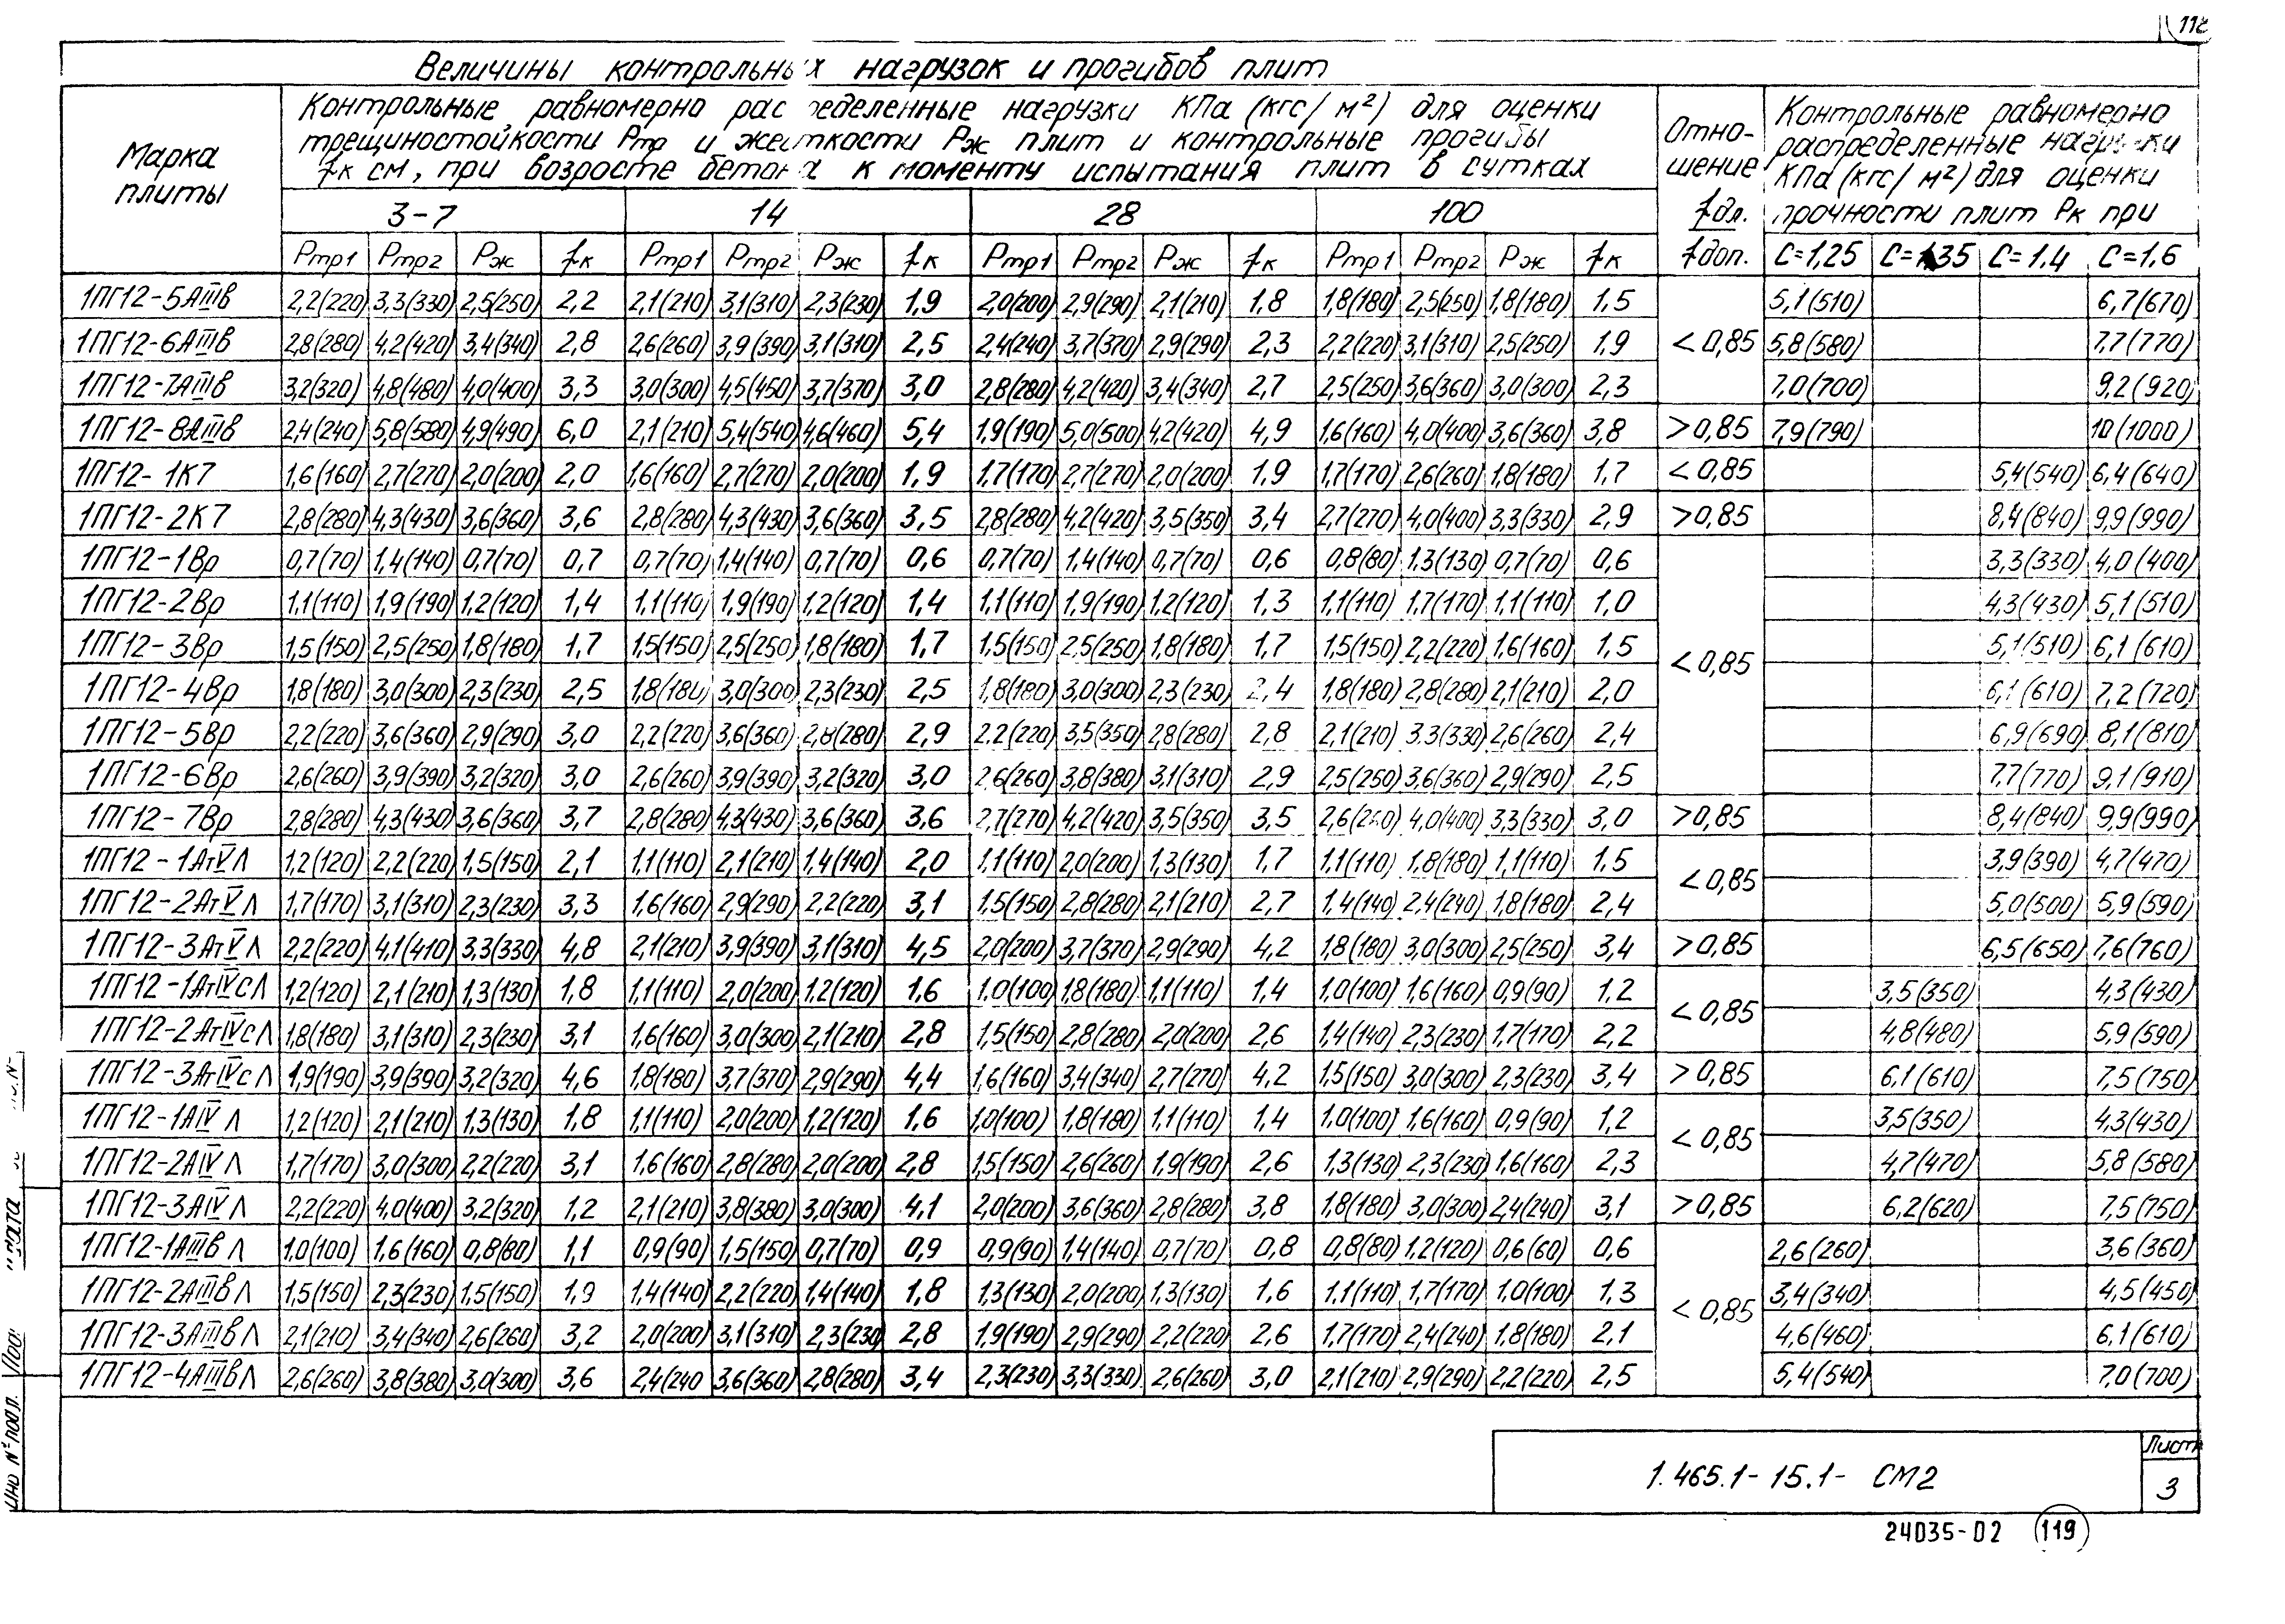 Величины контрольных нагрузок и прогибов плит
Марка плиты
Контрольные равномерно распределенные нагрузки КПа (кгс/м²) для оценки
трещиностойкости Ртр и жесткости Рж плит и контрольные прогибы
fк см, при возрасте бетона к моменту испытания плит в сутках
Отношение fдл. fдоп.
Контрольные равномерно
распределенные нагрузки
КПа (кгс/м²) для оценки
прочности плит Рк при
3-7 14 28 100
Ртр1 Ртр2 Рж fк Ртр1 Ртр2 Рж fк Ртр1 Ртр2 Рж fк Ртр1 Ртр2 Рж fк С=1,25 С=1,35 С=1.4 С=1,6
1ПГ12-5АIIIв 2,2(220) 3,3(330) 2,5(250) 2,2 2,1(210) 3,1(310) 2,3(230) 1,9 2,0(200) 2,9(290) 2,1(210) 1,8 1,8(180) 2,5(250) 1,8(180) 1,5 5,1(510) 6,7(670)
1ПГ12-6АIIIв 2,8(280) 4,2(420) 3,4(340) 2,8 2,6(260) 3,9(390) 3,1(310) 2,5 2,4(240) 3,7(370) 2,9(290) 2,3 2,2(220) 3,1(310) 2,5(250) 1,9 <0,85 5,8(580) 7,7(770)
1ПГ12-7АIIIв 3,2(320) 4,8(480) 4,0(400) 3,3 3,0(300) 4,5(450) 3,7(370) 3,0 2,8(280) 4,2(420) 3,4(340) 2,7 2,5(250) 3,6(360) 3,0(300) 2,3 7,0(700) 9,2(920)
1ПГ12-8АIIIв 2,4(240) 5,8(580) 4,9(490) 6,0 2,1(210) 5,4(540) 4,6(460) 5,4 1,9(190) 5,0(500) 4,2(420) 4,9 1,6(160) 4,0(400) 3,6(360) 3,8 >0,85 7,9(790) 10(1000)
1ПГ12-1К7 1,6(160) 2,7(270) 2,0(200) 2,0 1,6(160) 2,7(270) 2,0(200) 1,9 1,7(170) 2,7(270) 2,0(200) 1,9 1,7(170) 2,6(260) 1,8(180) 1,7 <0,85 5,4(540) 6,4(640)
1ПГ12-2К7 2,8(280) 4,3(430) 3,6(360) 3,6 2,8(280) 4,3(430) 3,6(360) 3,5 2,8(280) 4,2(420) 3,5(350) 3,4 2,7(270) 4,0(400) 3,3(330) 2,9 >0,85 8,4(840) 9,9(990)
1ПГ12-1Вр 0,7(70) 1,4(140) 0,7(70) 0,7 0,7(70) 1,4(140) 0,7(70) 0,6 0,7(70) 1,4(140) 0,7(70) 0,6 0,8(80) 1,3(130) 0,7(70) 0,6 3,3(330) 4,0(400)
1ПГ12-2Вр 1,1(110) 1,9(190) 1,2(120) 1,4 1,1(110) 1,9(190) 1,2(120) 1,4 1,1(110) 1,9(190) 1,2(120) 1,3 1,1(110) 1,7(170) 1,1(110) 1,0 4,3(430) 5,1(510)
1ПГ12-3Вр 1,5(150) 2,5(250) 1,8(180) 1,7 1,5(150) 2,5(250) 1,8(180) 1,7 1,5(150) 2,5(250) 1,8(180) 1,7 1,5(150) 2,2(220) 1,6(160) 1,5 <0,85 5,1(510) 6,1(610)
1ПГ12-4Вр 1,8(180) 3,0(300) 2,3(230) 2,5 1,8(180) 3,0(300) 2,3(230) 2,5 1,8(180) 3,0(300) 2,3(230) 2,4 1,8(180) 2,8(280) 2,1(210) 2,0 6,1(610) 7,2(720)
1ПГ12-5Вр 2,2(220) 3,6(360) 2,9(290) 3,0 2,2(220) 3,6(360) 2,8(280) 2,9 2,2(220) 3,5(350) 2,8(280) 2,8 2,1(210) 3,3(330) 2,6(260) 2,4 6,9(690) 8,1(810)
1ПГ12-6Вр 2,6(260) 3,9(390) 3,2(320) 3,0 2,6(260) 3,9(390) 3,2(320) 3,0 2,6(260) 3,8(380) 3,1(310) 2,9 2,5(250) 3,6(360) 2,9(290) 2,5 7,7(770) 9,1(910)
1ПГ12-7Вр 2,8(280) 4,3(430) 3,6(360) 3,7 2,8(280) 4,3(430) 3,6(360) 3,6 2,7(270) 4,2(420) 3,5(350) 3,5 2,6(260) 4,0(400) 3,3(330) 3,0 >0,85 8,4(840) 9,9(990)
1ПГ12-1АтVЛ 1,2(120) 2,2(220) 1,5(150) 2,1 1,1(110) 2,1(210) 1,4(140) 2,0 1,1(110) 2,0(200) 1,3(130) 1,7 1,1(110) 1,8(180) 1,1(110) 1,5 <0,85 3,9(390) 4,7(470)
1ПГ12-2АтVЛ 1,7(170) 3,1(310) 2,3(230) 3,3 1,6(160) 2,9(290) 2,2(220) 3,1 1,5(150) 2,8(280) 2,1(210) 2,7 1,4(140) 2,4(240) 1,8(180) 2,4 5,0(500) 5,9(590)
1ПГ12-3АтVЛ 2,2(220) 4,1(410) 3,3(330) 4,8 2,1(210) 3,9(390) 3,1(310) 4,5 2,0(200) 3,7(370) 2,9(290) 4,2 1,8(180) 3,0(300) 2,5(250) 3,4 >0,85 6,5(650) 7,6(760)
1ПГ12-1АтIVСЛ 1,2(120) 2,1(210) 1,3(130) 1,8 1,1(110) 2,0(200) 1,2(120) 1,6 1,0(100) 1,8(180) 1,1(110) 1,4 1,0(100) 1,6(160) 0,9(90) 1,2 <0,85 3,5(350) 4,3(430)
1ПГ12-2АтIVСЛ 1,8(180) 3,1(310) 2,3(230) 3,1 1,6(160) 3,0(300) 2,1(210) 2,8 1,5(150) 2,8(280) 2,0(200) 2,6 1,4(140) 2,3(230) 1,7(170) 2,2 4,8(480) 5,9(590)
1ПГ12-3АтIVСЛ 1,9(190) 3,9(390) 3,2(320) 4,6 1,8(180) 3,7(370) 2,9(290) 4,4 1,6(160) 3,4(340) 2,7(270) 4,2 1,5(150) 3,0(300) 2,3(230) 3,4 >0,85 6,1(610) 7,5(750)
1ПГ12-1АIVЛ 1,2(120) 2,1(210) 1,3(130) 1,8 1,1(110) 2,0(200) 1,2(120) 1,6 1,0(100) 1,8(180) 1,1(110) 1,4 1,0(100) 1,6(160) 0,9(90) 1,2 <0,85 3,5(350) 4,3(430)
1ПГ12-2АIVЛ 1,7(170) 3,0(300) 2,2(220) 3,1 1,6(160) 2,8(280) 2,0(200) 2,8 1,5(150) 2,6(260) 1,9(190) 2,6 1,3(130) 2,3(230) 1,6(160) 2,3 4,7(470) 5,8(580)
1ПГ12-3АIVЛ 2,2(220) 4,0(400) 3,2(320) 1,2 2,1(210) 3,8(380) 3,0(300) 4,1 2,0(200) 3,6(360) 2,8(280) 3,8 1,8(180) 3,0(300) 2,4(240) 3,1 >0,85 6,2(620) 7,5(750)
1ПГ12-1АIIIвЛ 1,0(100) 1,6(160) 0,8(80) 1,1 0,9(90) 1,5(150) 0,7(70) 0,9 0,9(90) 1,4(140) 0,7(70) 0,8 0,8(80) 1,2(120) 0,6(60) 0,6 2,6(260) 3,6(360)
1ПГ12-2АIIIвЛ 1,5(150) 2,3(230) 1,5(150) 1,9 1,4(140) 2,2(220) 1,4(140) 1,8 1,3(130) 2,0(200) 1,3(130) 1,6 1,1(110) 1,7(170) 1,0(100) 1,3 <0,85 3,4(340) 4,5(450)
1ПГ12-3АIIIвЛ 2,1(210) 3,4(340) 2,6(260) 3,2 2,0(200) 3,1(310) 2,3(230) 2,8 1,9(190) 2,9(290) 2,2(220) 2,6 1,7(170) 2,4(240) 1,8(180) 2,1 4,6(460) 6,1(610)
1ПГ12-4АIIIвЛ 2,6(260) 3,8(380) 3,0(300) 3,6 2,4(240 3,6(360) 2,8(280) 3,4 2,3(230) 3,3(330) 2,6(260) 3,0 2,1(210) 2,9(290) 2,2(220) 2,5 5,4(540) 7,0(700)
1.465.1-15.1- СМ2
Лист
3
24035-02 119